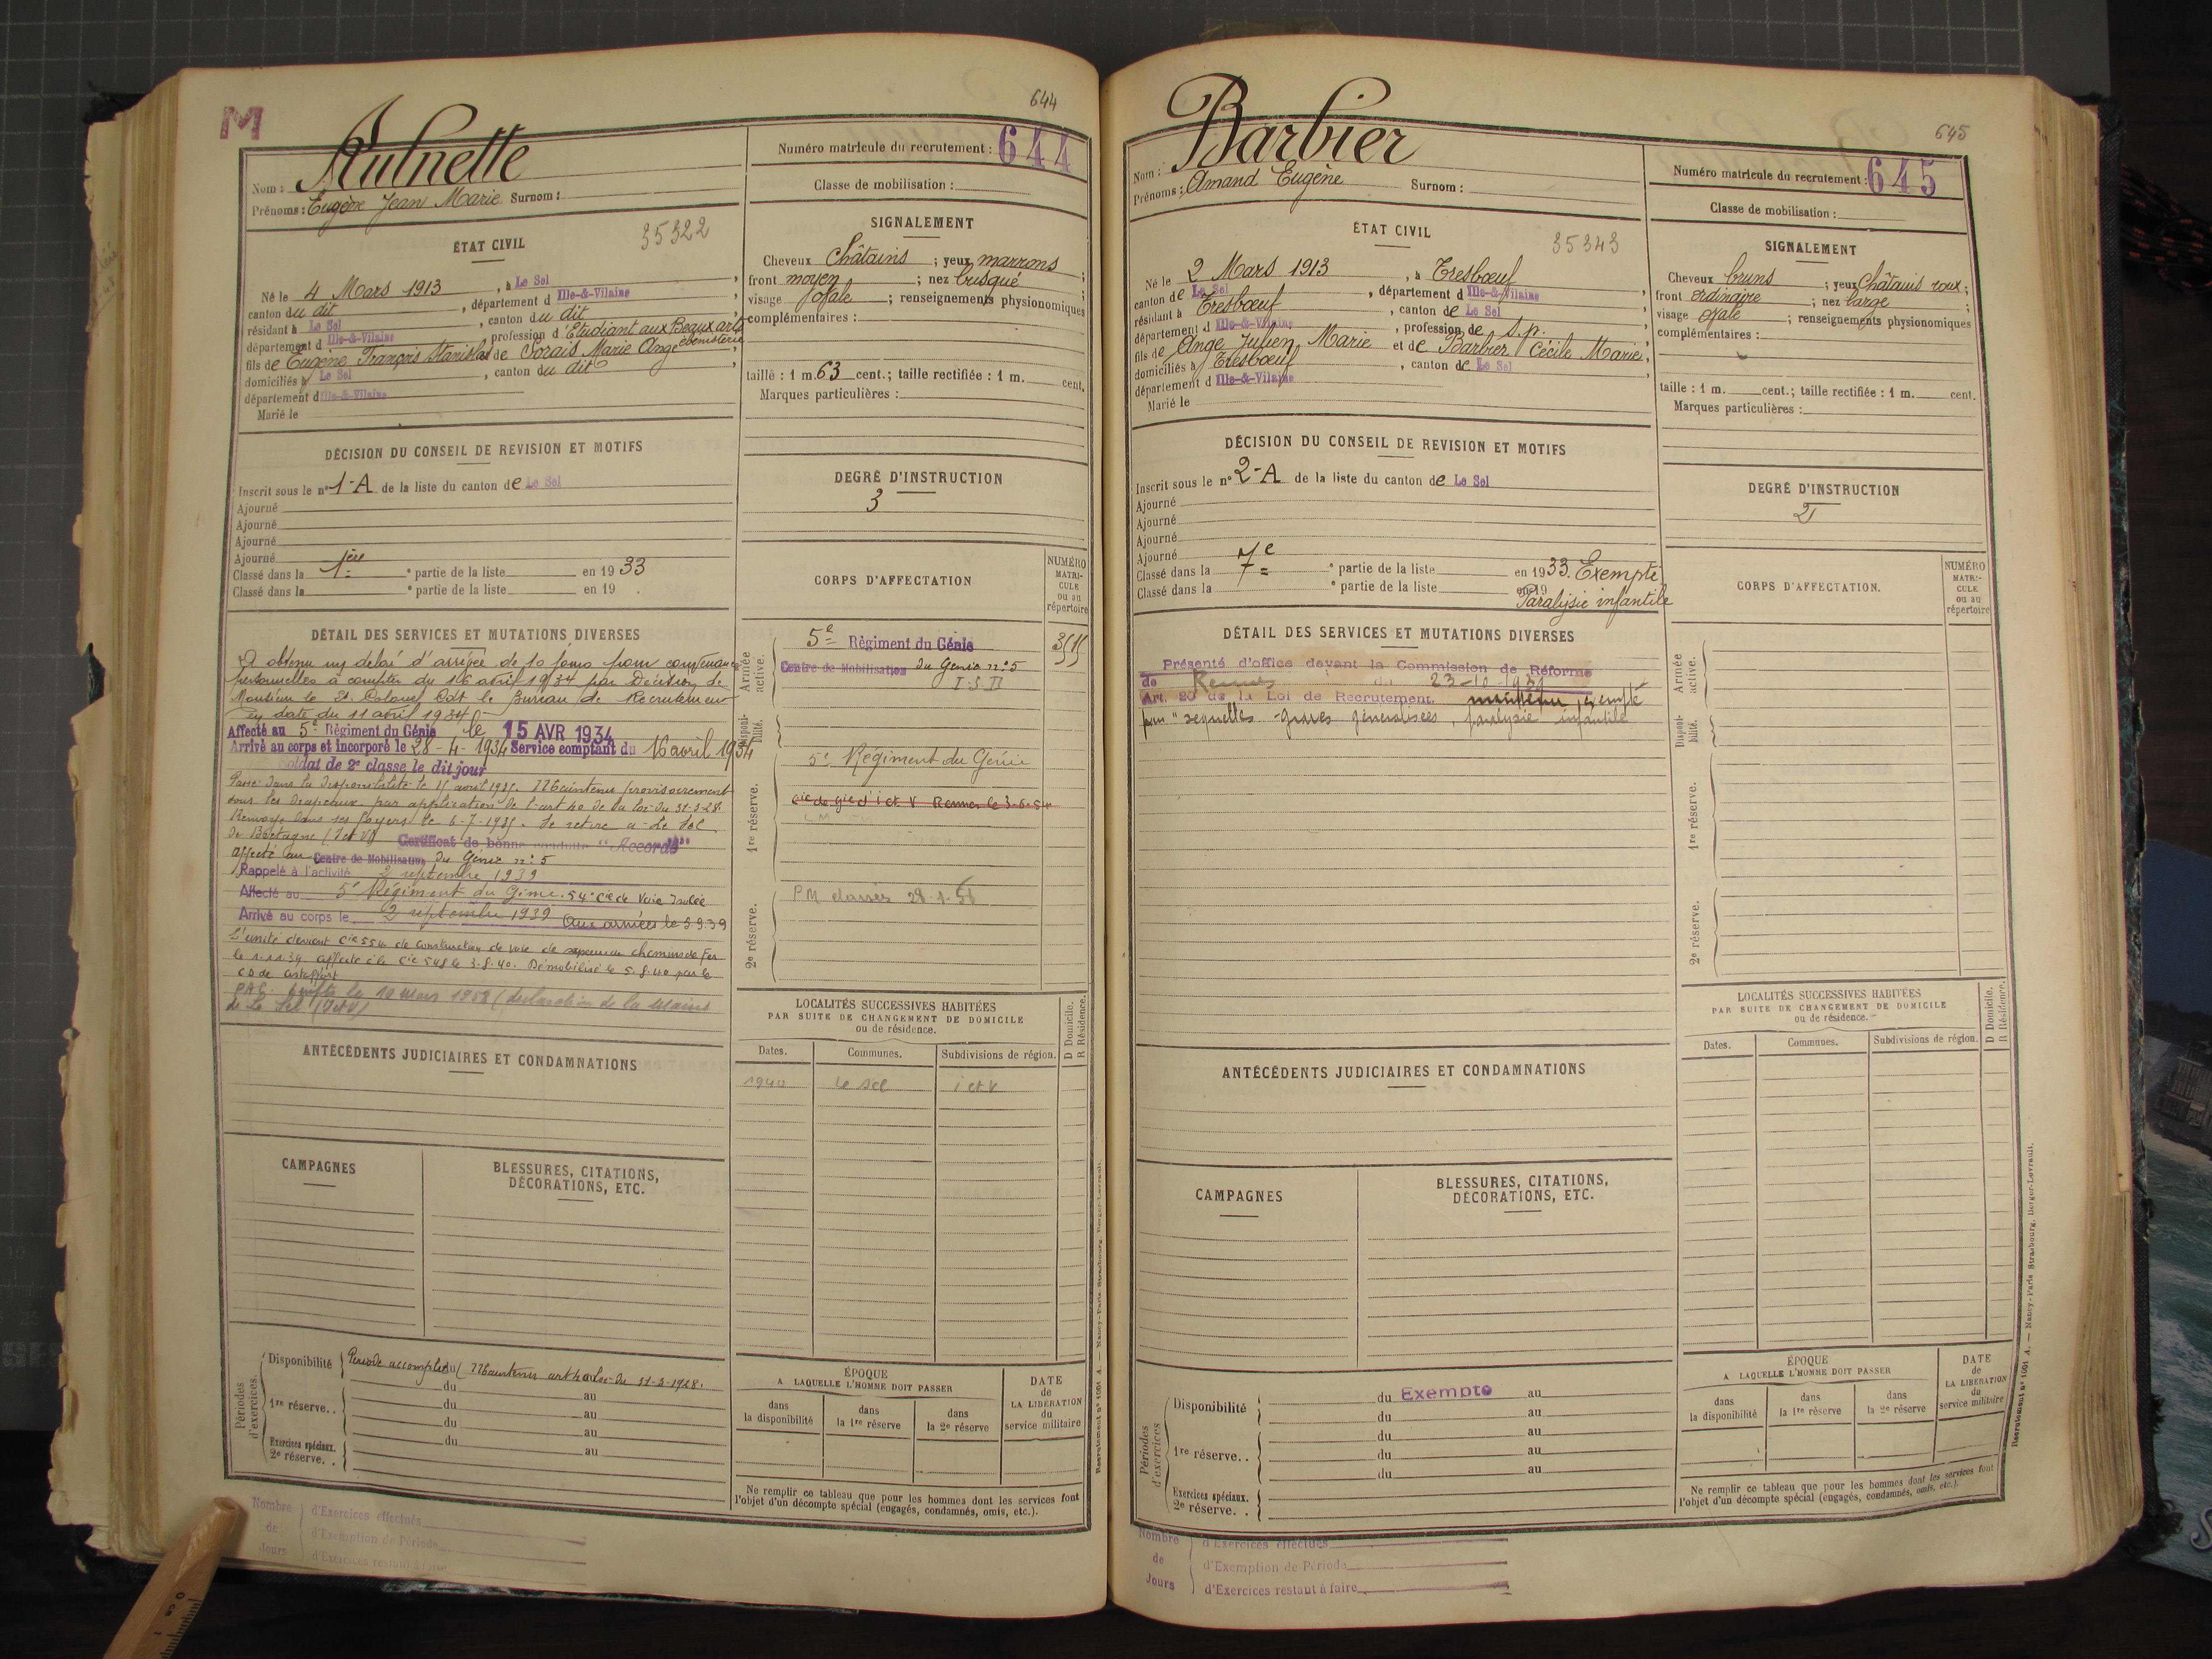 M
644
Nom : Aulnette
Prénoms : Eugène Jean Marie. Surnom :
Numéro matricule du recrutement : 644
Classe de mobilisation :
ÉTAT CIVIL
35322
Né le 4 Mars 1913, à Le Sel,
canton du dit, département d Ille-&-Vilaine,
résidant à Le Sel, canton du dit,
département d Ille-&-Vilaine, profession d'Etudiant aux Beaux arts
ébénisterie
fils de Eugène François Stanislas de Sorais Marie Ange,
domiciliés à Le Sel, canton du dit,
département d Ille-&-Vilaine
Marié le
SIGNALEMENT
Cheveux Châtains ; yeux marrons ;
front moyen ; nez busqué ;
visage ovale ; renseignements physionomiques
complémentaires :
taille : 1 m. 63 cent.; taille rectifiée : 1 m. cent.
Marques particulières :
DÉCISION DU CONSEIL DE REVISION ET MOTIFS
Inscrit sous le n° 1-A de la liste du canton de Le Sel
Ajourné
Ajourné
Ajourné
Ajourné
Classé dans la 1ère e partie de la liste en 1933
Classé dans la e partie de la liste en 19 .
DEGRÉ D'INSTRUCTION
3
CORPS D'AFFECTATION
NUMÉRO
MATRI-
CULE
ou au
répertoire
DÉTAIL DES SERVICES ET MUTATIONS DIVERSES
A obtenu un délai d'arrivée de 10 jours pour convenances
personnelles à compter du 16 avril 1934 par Décision de
Monsieur le Lt. Colonel Cdt le Bureau de Recrutement
en date du 11 avril 1934
Affecté au 5e Régiment du Génie le 15 AVR 1934
Arrivé au corps et incorporé le 28-4-1934 Service comptant du 16 avril 1934
Soldat de 2e classe le dit jour
Passé dans la disponibilité le 15 avril 1935. Maintenu provisoirement
sous les drapeaux par application de l'art 40 de la loi du 31-3-28
Renvoyé dans ses foyers le 6-7-1935. Se retire à Le Sel
de Bretagne (I et V) Certificat de bonne conduite "Accordé"
affecté au Centre de Mobilisation du Génie n° 5
Rappelé à l'activité 2 septembre 1939
Affecté au 5e Régiment du Génie. 54e Cie de Voie
Arrivé au corps le 2 septembre 1939 Aux armées le 5.9.39
L'unité devient Cie de construction de voie de chemins de Fer
le 1.11.39 affecté à la Cie le 3.8.40. Démobilisé le 5.8.40 par le
CD de Casteljaloux
le 10 mars 1958 (déclaration de la Mairie
de Le Sel (I et V)
Armée
active.
5e Régiment du Génie
Centre de Mobilisation du Génie n° 5
I.S.II
Disponi-
bilité.
1re réserve.
5e Régiment du Génie
Rennes le
2e réserve.
P M classés 28.1.
LOCALITÉS SUCCESSIVES HABITÉES
PAR SUITE DE CHANGEMENT DE DOMICILE
ou de résidence.
D Domicile.
R Résidence.
Dates. Communes. Subdivisions de région.
1940 Le Sel I et V
ANTÉCÉDENTS JUDICIAIRES ET CONDAMNATIONS
CAMPAGNES
BLESSURES, CITATIONS,
DÉCORATIONS, ETC.
Périodes
d'exercices.
Disponibilité Période accomplie du Maintenu art 40 loi du 31-3-1928.
du au
1re réserve. . du au
du au
Exercices spéciaux. du au
2e réserve. .
ÉPOQUE
A LAQUELLE L'HOMME DOIT PASSER
dans
la disponibilité
dans
la 1re réserve
dans
la 2e réserve
DATE
de
LA LIBÉRATION
du
service militaire
Ne remplir ce tableau que pour les hommes dont les services font
l'objet d'un décompte spécial (engagés, condamnés, omis, etc.).
Nombre
de
Jours
d'Exercices effectués
d'Exemption de Période
d'Exercices restant à faire
Recrutement n° 1001 A. — Nancy-Paris-Strasbourg, Berger-Levrault.
645
Nom : Barbier
Prénoms : Amand Eugène Surnom :
Numéro matricule du recrutement : 645
Classe de mobilisation :
ÉTAT CIVIL
35343
Né le 2 Mars 1913, à Tresbœuf
canton de Le Sel, département d Ille-&-Vilaine,
résidant à Tresbœuf, canton de Le Sel,
département d Ille-&-Vilaine, profession de s.p.,
fils de Ange Julien Marie et de Barbier Cécile Marie,
domiciliés à Tresbœuf, canton de Le Sel,
département d Ille-&-Vilaine
Marié le
SIGNALEMENT
Cheveux bruns ; yeux châtains roux ;
front ordinaire ; nez large ;
visage ovale ; renseignements physionomiques
complémentaires :
taille : 1 m. cent.; taille rectifiée : 1 m. cent.
Marques particulières :
DÉCISION DU CONSEIL DE REVISION ET MOTIFS
Inscrit sous le n° 2-A de la liste du canton de Le Sel
Ajourné
Ajourné
Ajourné
Ajourné
Classé dans la 7e e partie de la liste en 1933. Exempté
Classé dans la e partie de la liste en 19
Paralysie infantile
DEGRÉ D'INSTRUCTION
2
CORPS D'AFFECTATION.
NUMÉRO
MATRI-
CULE
ou au
répertoire
DÉTAIL DES SERVICES ET MUTATIONS DIVERSES
Présenté d'office devant la Commission de Réforme
de Rennes du 23-10-1939
Art. 20 de la Loi de Recrutement. maintenu exempté
pour "séquelles graves généralisées, paralysie infantile
Armée
active.
Disponi-
bilité.
1re réserve.
2e réserve.
LOCALITÉS SUCCESSIVES HABITÉES
PAR SUITE DE CHANGEMENT DE DOMICILE
ou de résidence.
D Domicile.
R Résidence.
Dates. Communes. Subdivisions de région.
ANTÉCÉDENTS JUDICIAIRES ET CONDAMNATIONS
CAMPAGNES
BLESSURES, CITATIONS,
DÉCORATIONS, ETC.
Périodes
d'exercices
Disponibilité du Exempté au
du au
du au
1re réserve. . du au
du au
Exercices spéciaux.
2e réserve. .
ÉPOQUE
A LAQUELLE L'HOMME DOIT PASSER
dans
la disponibilité
dans
la 1re réserve
dans
la 2e réserve
DATE
de
LA LIBÉRATION
du
service militaire
Ne remplir ce tableau que pour les hommes dont les services font
l'objet d'un décompte spécial (engagés, condamnés, omis, etc.).
Nombre
de
Jours
d'Exercices effectués
d'Exemption de Période
d'Exercices restant à faire
Recrutement n° 1001 A. — Nancy-Paris-Strasbourg, Berger-Levrault.